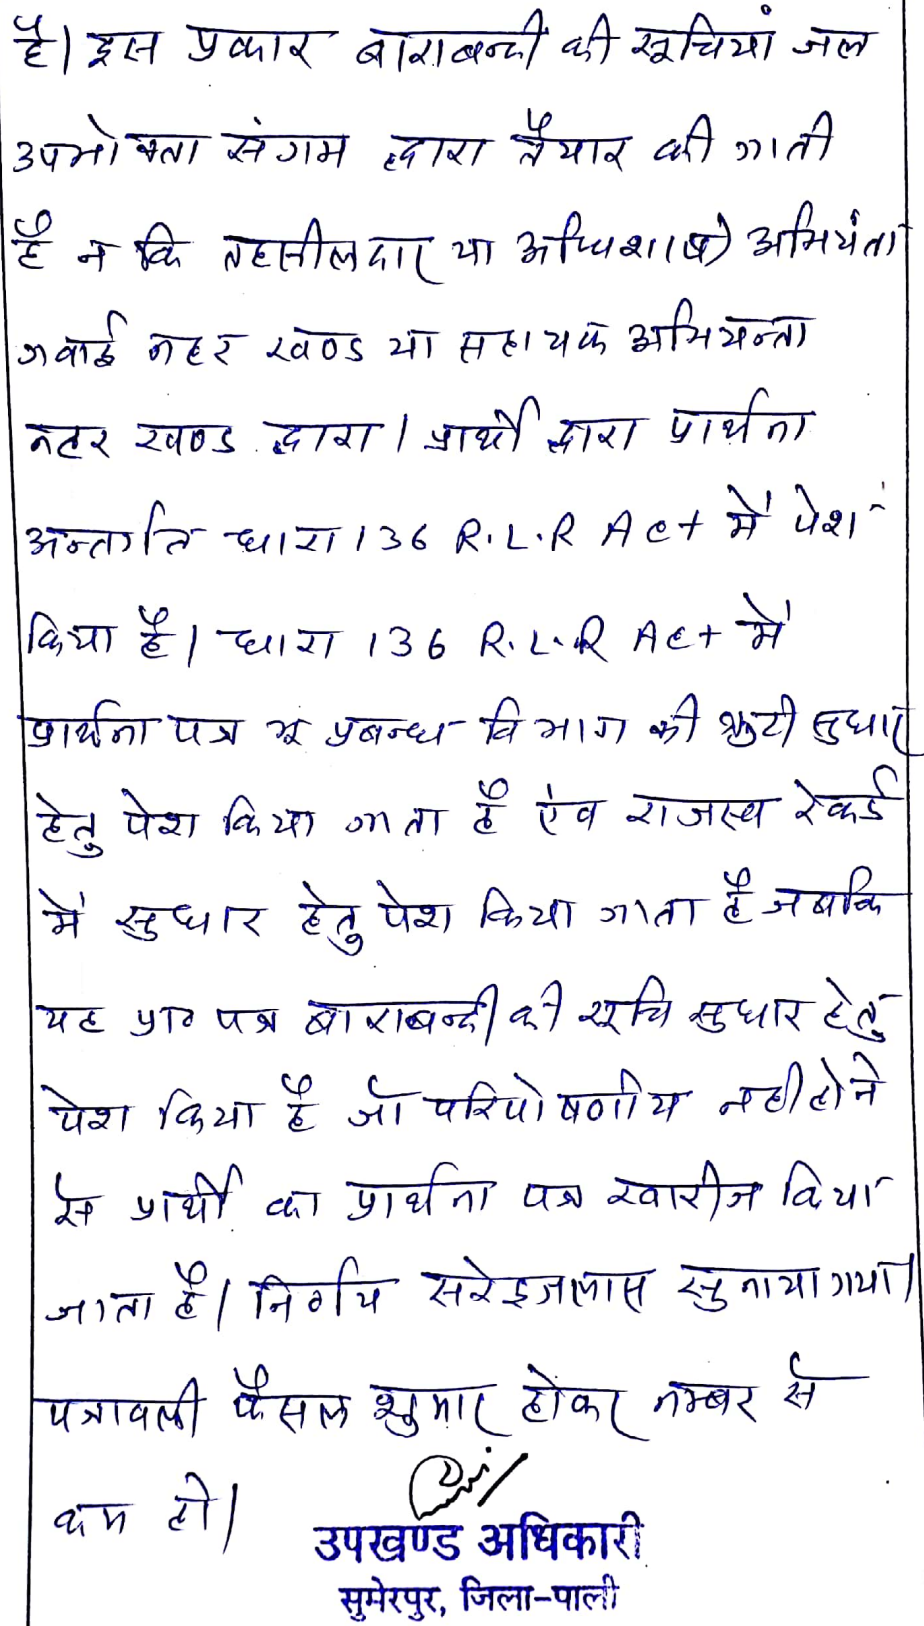 है। इस प्रकार बाराबन्दी की सूचियां जल
उपभोक्ता संगम द्वारा तैयार की जाती
है न कि तहसीलदार या अधिशाषी अभियंता
जवाई नहर खण्ड या सहायक अभियन्ता
नहर खण्ड द्वारा। प्रार्थी द्वारा प्रार्थना
अन्तर्गत धारा 136 R.L.R Act में पेश
किया है। धारा 136 R.L.R Act में
प्रार्थना पत्र भू प्रबन्ध विभाग की त्रुटी सुधार
हेतु पेश किया जाता है एंव राजस्व रेकर्ड
में सुधार हेतु पेश किया जाता है जबकि
यह प्रा० पत्र बाराबन्दी की सूचि सुधार हेतु
पेश किया है जो परिपोषणीय नही होने
से प्रार्थी का प्रार्थना पत्र खारीज किया
जाता है। निर्णय सरेइजलास सुनाया गया।
पत्रावली फैसल शुमार होकर नम्बर से
कम हो।
उपखण्ड अधिकारी
सुमेरपुर, जिला-पाली